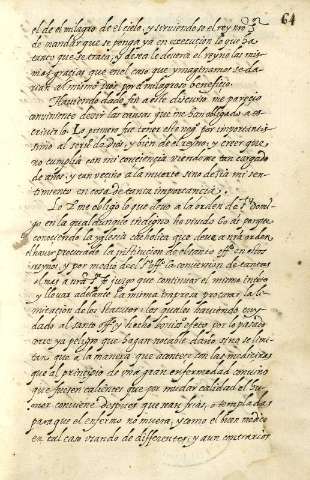 64
el de el milagro de el cielo, y sirviendose el rey nro S.r
de mandar que se ponga ya en execucion lo que ha
tanto que se trata, y desea le devera el reyno las mis
mas gracias que en el caso que ymaginamos se da
rian al mismo por milagroso beneficio.
Haviendo dado fin a este discurso me parecio
conviniente decir las causas que me han obligado a es
crivirlo. Lo primero fue tener este neg.o por importantis
simo al serv.o de dios, y bien de el reyno, y creer que
no cumplia con mi conciencia viendome tan cargado
de años, y tan vecino a la muerte sino decia mi sen
timiento en cosa de tanta importancia.
Lo 2.o me obligo lo que devo a la orden de S.to Domin
go en la qual aunque indigno he vivido
conociendo la yglesia catholica que deve a nra orden
el haver procurado la institucion de el santo off.o en estos
reynos, y por medio de el S.to off.o la conversion de tantas
almas a nra S.ta fe juzgo que continuar el mismo
y llevar adelante la misma impresa procurar la li
mitacion de los statutos, los quales haviendo ayu
dado al santo off.o y hecho buenos efectos por lo passado
corre ya peligro que hagan notable daño sino se limi
tan, que a la manera que acontece con las medicinas
que al principio de una gran enfermedad convino
que fuesen calientes que por mudar calidad el hu
mor conviene despues que sean frias, o templadas
para que el enfermo no muera, y como el buen medico
en tal caso usando de differentes, y aun contrarios